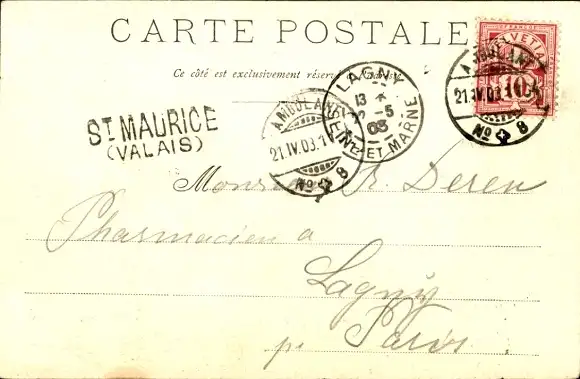 CARTE POSTALE
Ce côté est exclusivement réservé à l'adresse
FRANCO
HELVETIA
10
AMBULANT
21.IV.03.1
No 8
LAGNY
13
22-5
03
SEINE-ET-MARNE
AMBULANT
21.IV.03.1
No 8
ST. MAURICE
(VALAIS)
Monsieur R. Deren
Pharmacien a
Lagny
pr Paris.